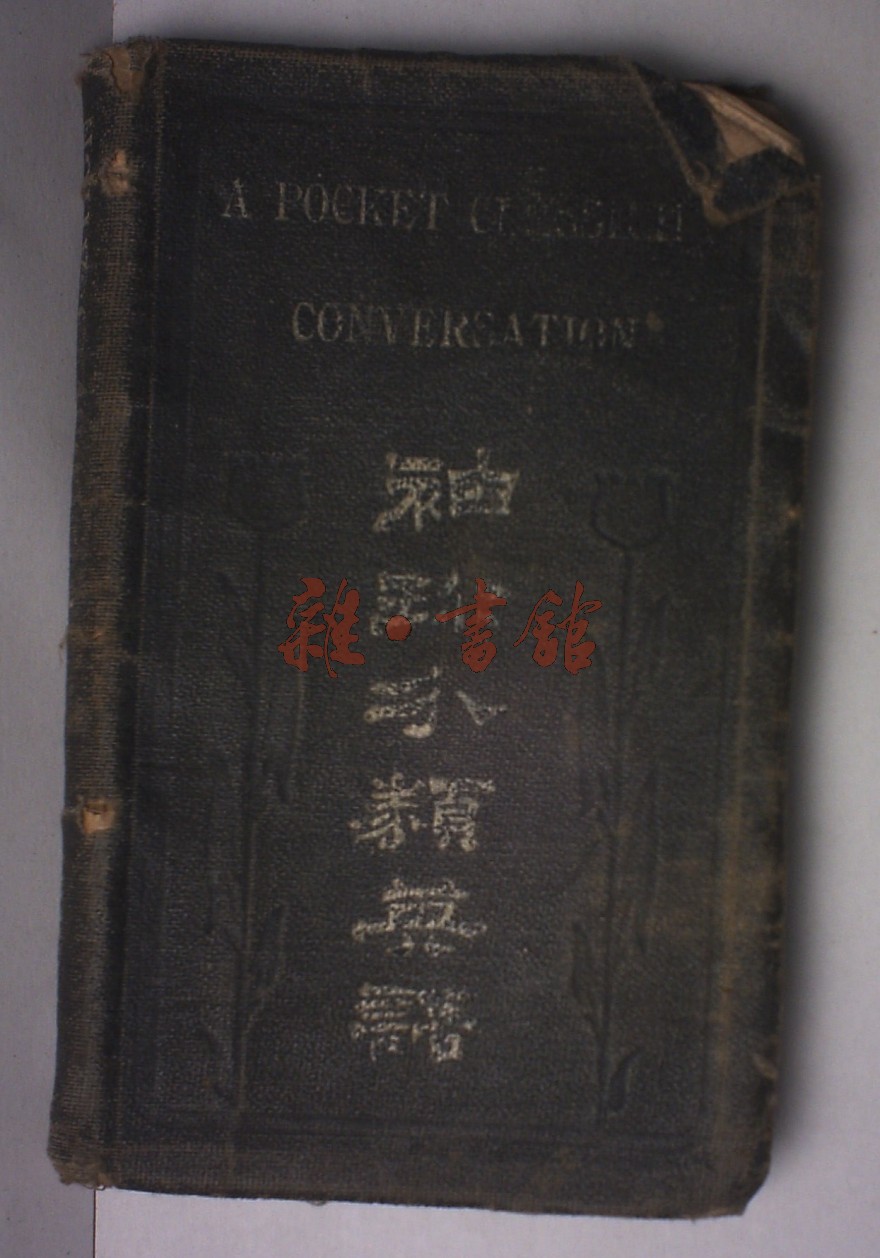 A POCKET
CONVERSATION
袖珍分類英語
雜·書館